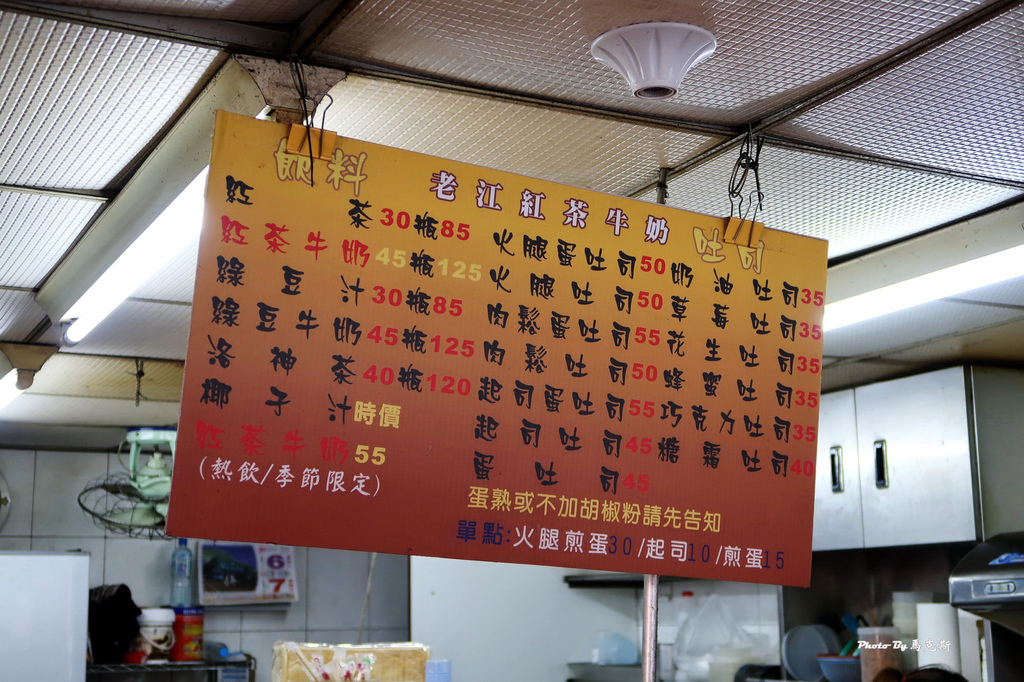 老江紅茶牛奶
飲料
紅茶30瓶85
紅茶牛奶45瓶125
綠豆汁30瓶85
綠豆牛奶45瓶125
洛神茶40瓶120
椰子汁時價
紅茶牛奶55
(熱飲/季節限定)
吐司
火腿蛋吐司50
火腿吐司50
肉鬆蛋吐司55
肉鬆吐司50
起司蛋吐司55
起司吐司45
蛋吐司45
奶油吐司35
草莓吐司35
花生吐司35
蜂蜜吐司35
巧克力吐司35
糖霜吐司40
蛋熟或不加胡椒粉請先告知
單點:火腿煎蛋30/起司10/煎蛋15
6
7
Photo By 馬克斯